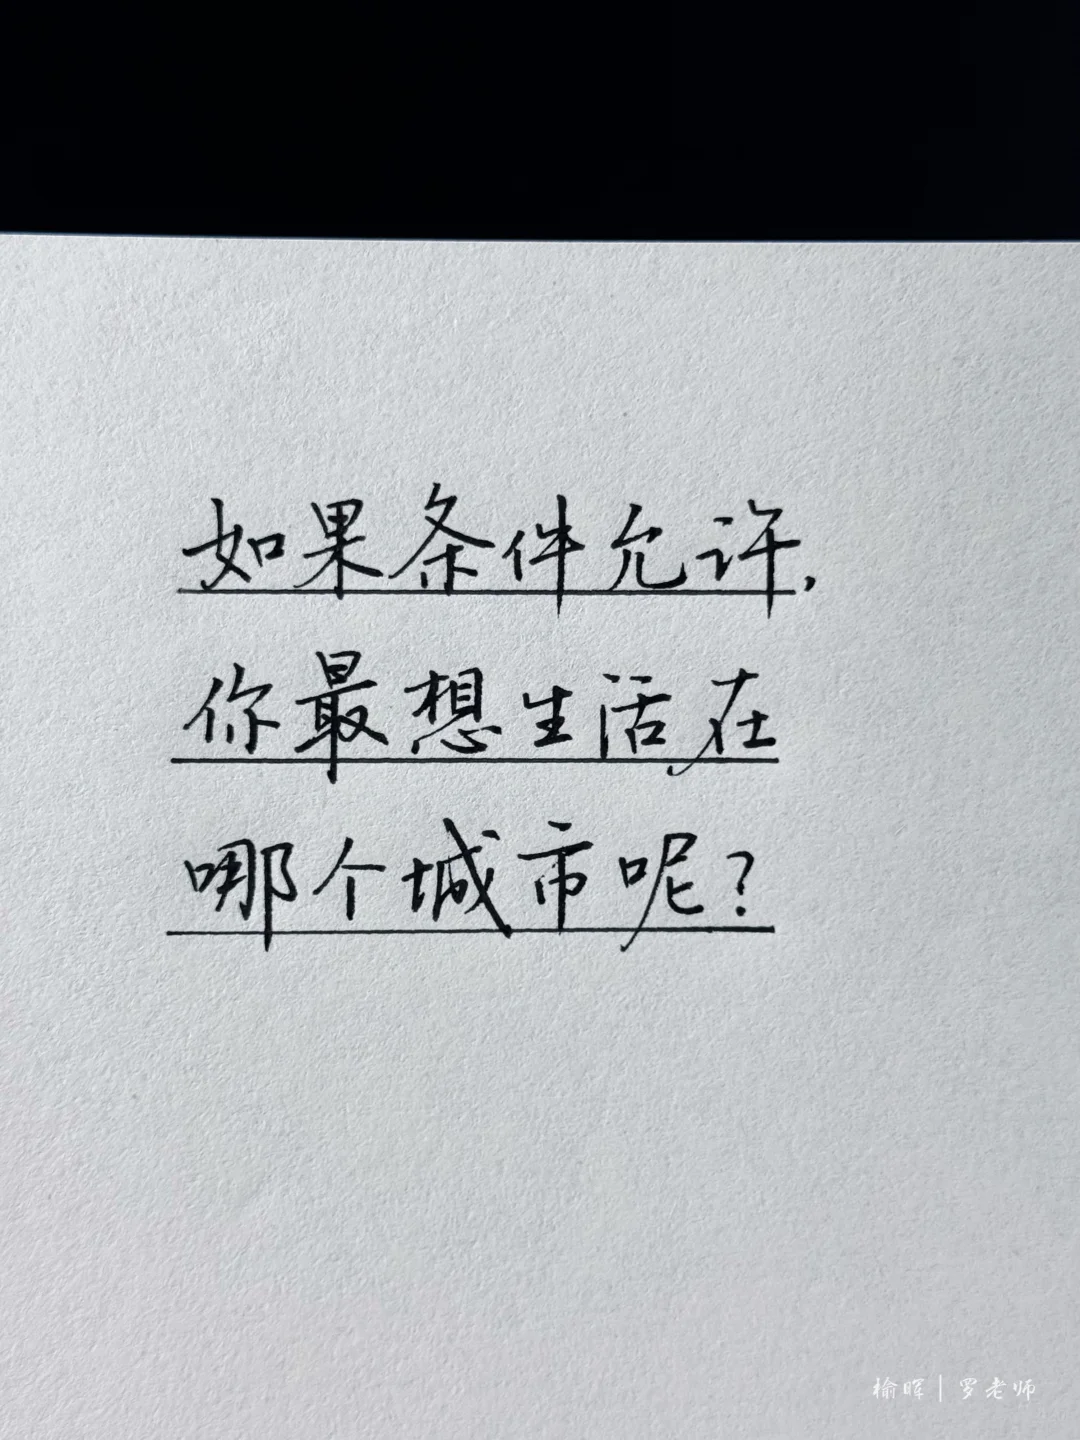 如果条件允许,
你最想生活在
哪个城市呢?
榆晖|罗老师